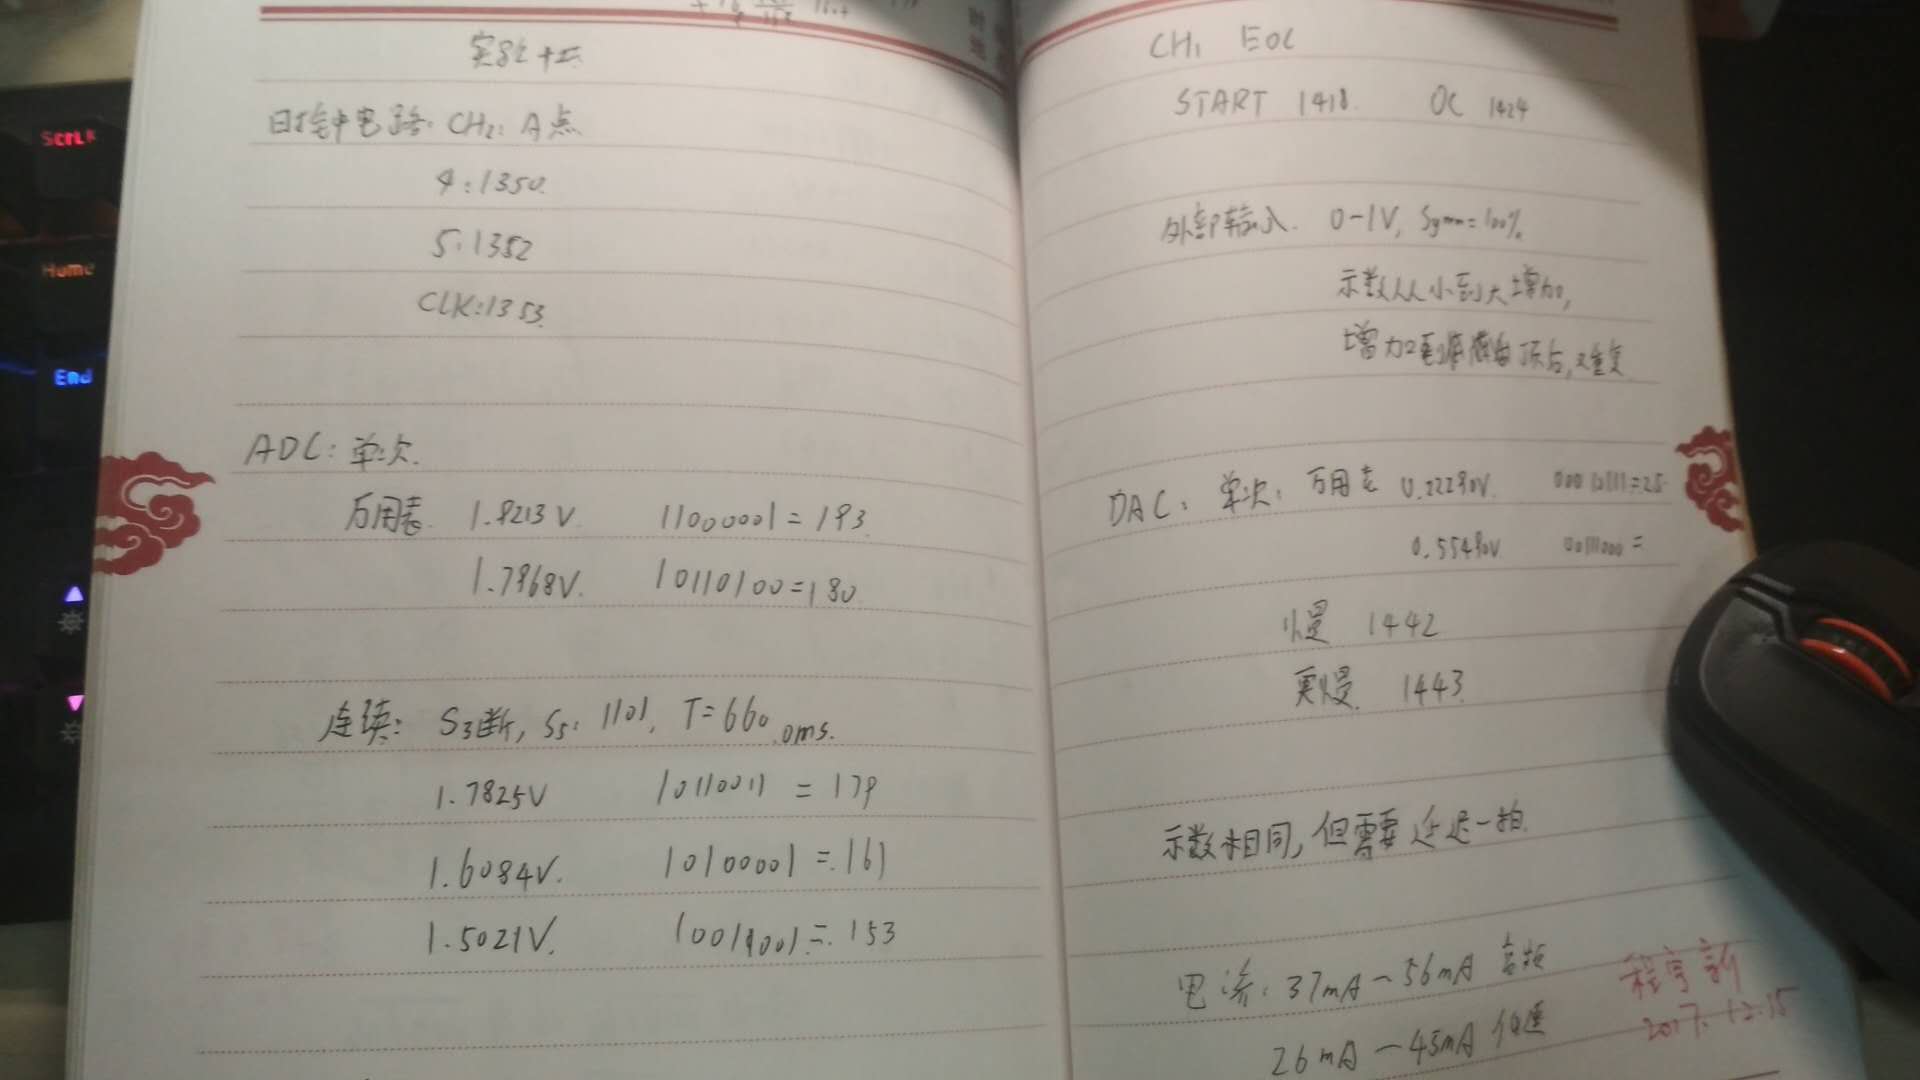 实验十五
时钟电路: CH2: A点
4:1350
5:1352
CLK:1353
ADC: 单次.
万用表 1.9213V 11000001=193
1.7968V. 10110100=180
连续: S3断, S5: 1101, T=660.0ms.
1.7825V 10110011 = 179
1.6084V. 10100001 = 161
1.5021V. 10011001 = 153
CH1 EOC
START 1418. OC 1424
外部输入. 0-1V, Symm=100%
示数从小到大增加,
增加到 顶后, 重复
DAC: 单次: 万用表 0.22290V. =25
0.55490V 00111000 =
慢 1442
更慢. 1443
示数相同, 但需要延迟一拍.
电流: 37mA-56mA 音频
26mA-45mA 低速
2017.12.15
ScrLK
Home
End